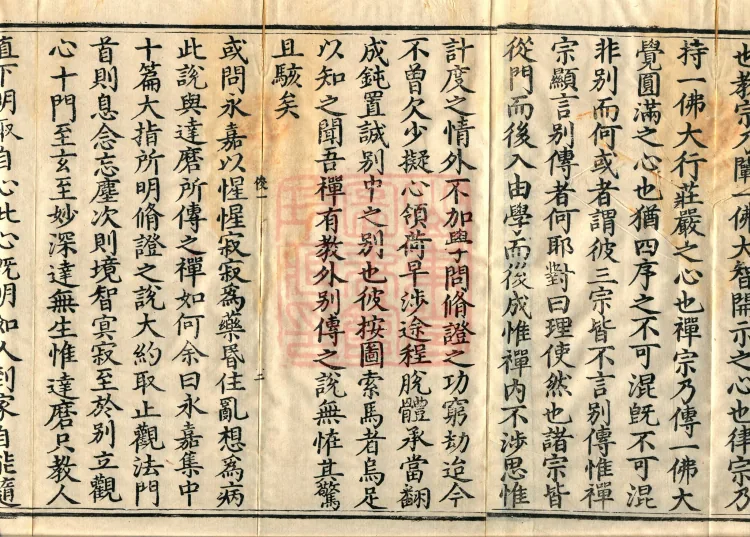 也教宗乃闡一佛大智開示之心也律宗乃
持一佛大行莊嚴之心也禪宗乃傳一佛大
覺圓滿之心也猶四序之不可混旣不可混
非別而何或者謂彼三宗皆不言別傳惟禪
宗顯言別傳者何耶對曰理使然也諸宗皆
從門而後入由學而後成惟禪內不涉思惟
計度之情外不加學問脩證之功窮劫迨今
不曾欠少擬心領荷早涉途程脫體承當翻
成鈍置誠別中之別也彼按圖索馬者烏足
以知之聞吾禪有教外別傳之說無恠其驚
且駭矣
或問永嘉以惺惺寂寂為藥昏住亂想為病
此說與達磨所傳之禪如何余曰永嘉集中
十篇大指所明脩證之說大約取止觀法門
首則息念忘塵次則境智冥寂至於別立觀
心十門至玄至妙深達無生惟達磨只教人
直下明取自心此心旣明如人到家自能隨